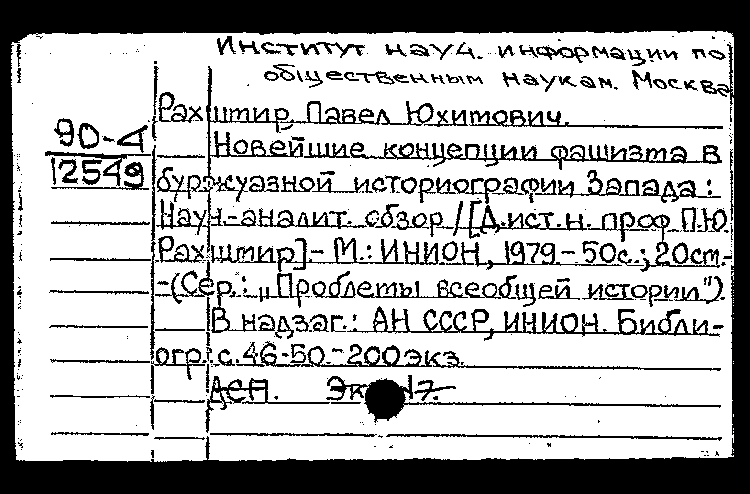 Институт науч. информации по
общественным наукам. Москва
Рахшмир, Павел Юхимович.
90-4
12549
Новейшие концепции фашизма в
буржуазной историографии Запада:
Науч.-аналит. обзор / [Д.ист.н. проф. П.Ю.
Рахшмир]. - М.: ИНИОН, 1979 - 50с.; 20см.-
-(Сер.: „Проблемы всеобщей истории").
В надзаг.: АН СССР, ИНИОН. Библи-
огр.: с. 46-50. - 200 экз.
ДСП.